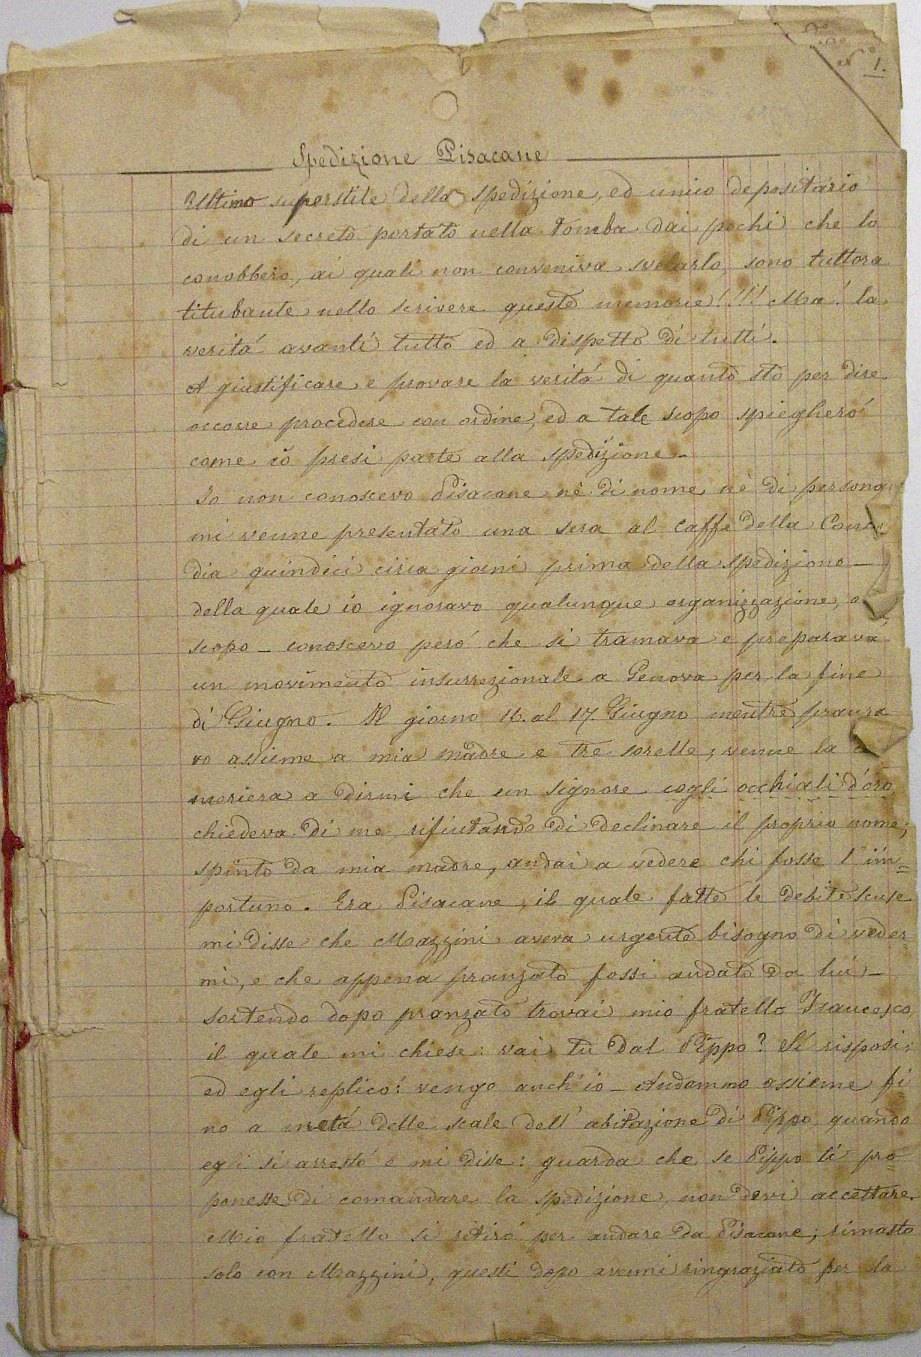 1.
Spedizione Pisacane
Ultimo superstite della spedizione, ed unico depositario
di un secreto portato nella tomba dai pochi che lo
conobbero, ai quali non conveniva svelarlo, sono tuttora
titubante nello scrivere queste memorie!!!! Ma! la
veritá avanti tutto ed a dispetto di tutti.
A giustificare e provare la veritá di quanto stó per dire
occorre procedere con ordine, ed a tale scopo spiegheró
come ió presi parte alla spedizione_
Io non conoscevo Pisacane nè di nome nè di persona
mi venne presentato una sera al caffe della Concor
dia quindici circa giorni prima della spedizione_
della quale io ignoravo qualunque organizzazione, o
scopo_ conoscevo peró che si tramava e preparava
un movimento insurrezionale a Genova per la fine
di Giugno. Il giorno 16. al 17. Giugno mentre pranza
vo assieme a mia madre e tre sorelle, venne la ca
meriera a dirmi che un signore cogli occhiali d'oro
chiedeva di me, rifiutando di declinare il proprio nome;
spinto da mia madre, andai a vedere chi fosse l'im=
portuno. Era Pisacane, il quale fatte le debite scuse
mi disse che Mazzini aveva urgente bisogno di veder
mi, e che appena pranzato fossi andato da lui_
Sortendo dopo pranzato trovai mio fratello Francesco,
il quale mi chiese: vai tu dal Pippo? Sí risposi;
ed egli replicó: vengo anch'io_ Andammo assieme fi
no a metá delle scale dell'abitazione di Pippo quando
egli si arrestó e mi disse: guarda che se Pippo ti pro=
ponesse di comandare la spedizione, non devi accettare.
Mio fratello si ritiró per andare da Pisacane; rimasto
solo con Mazzini, questi dopo avermi ringraziato per la